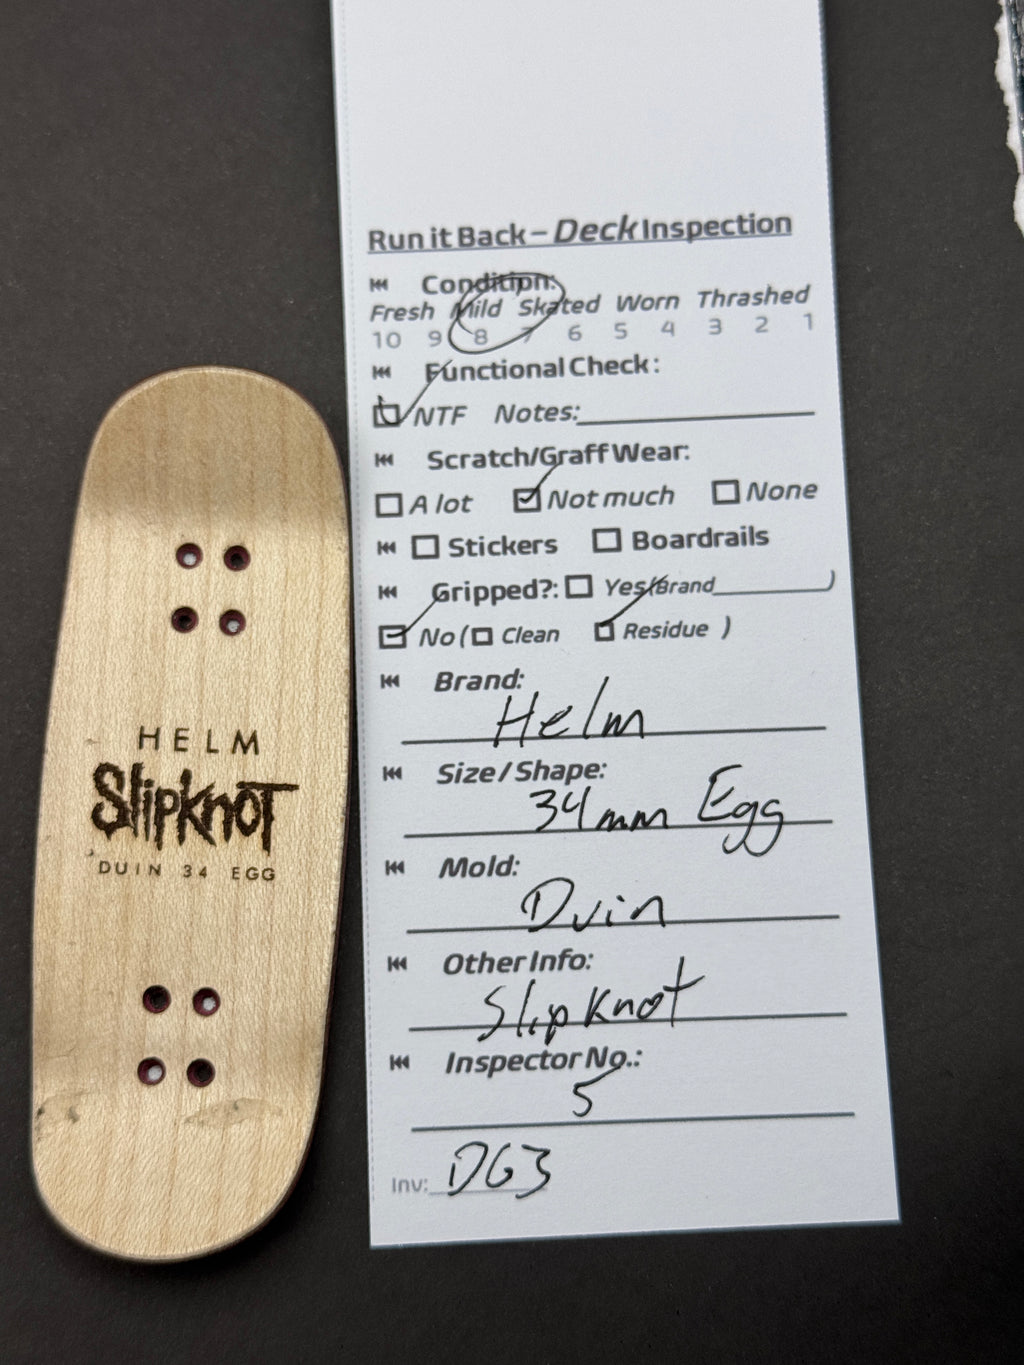 Run it Back – Deck Inspection
Condition:
Fresh Mild Skated Worn Thrashed
10 9 8 7 6 5 4 3 2 1
Functional Check:
NTF Notes:
Scratch/Graff Wear:
A lot Not much None
Stickers Boardrails
Gripped?: Yes/Brand )
No ( Clean Residue )
Brand:
Helm
Size/Shape:
34mm Egg
Mold:
Duin
Other Info:
Slipknot
Inspector No.:
5
Inv: DG3
HELM
Slipknot
DUIN 34 EGG